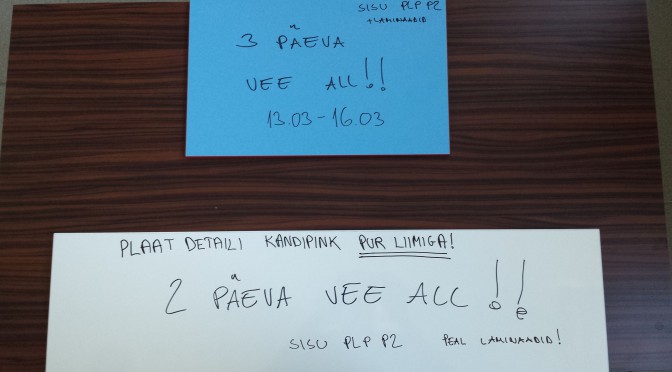 SISU PLP P2
+LAMINAADID
3 PÄEVA
VEE ALL!!
13.03-16.03
PLAAT DETAILI KANDIPINK PUR LIIMIGA!
2 PÄEVA VEE ALL!!
SISU PLP P2 PEAL LAMINAADID!